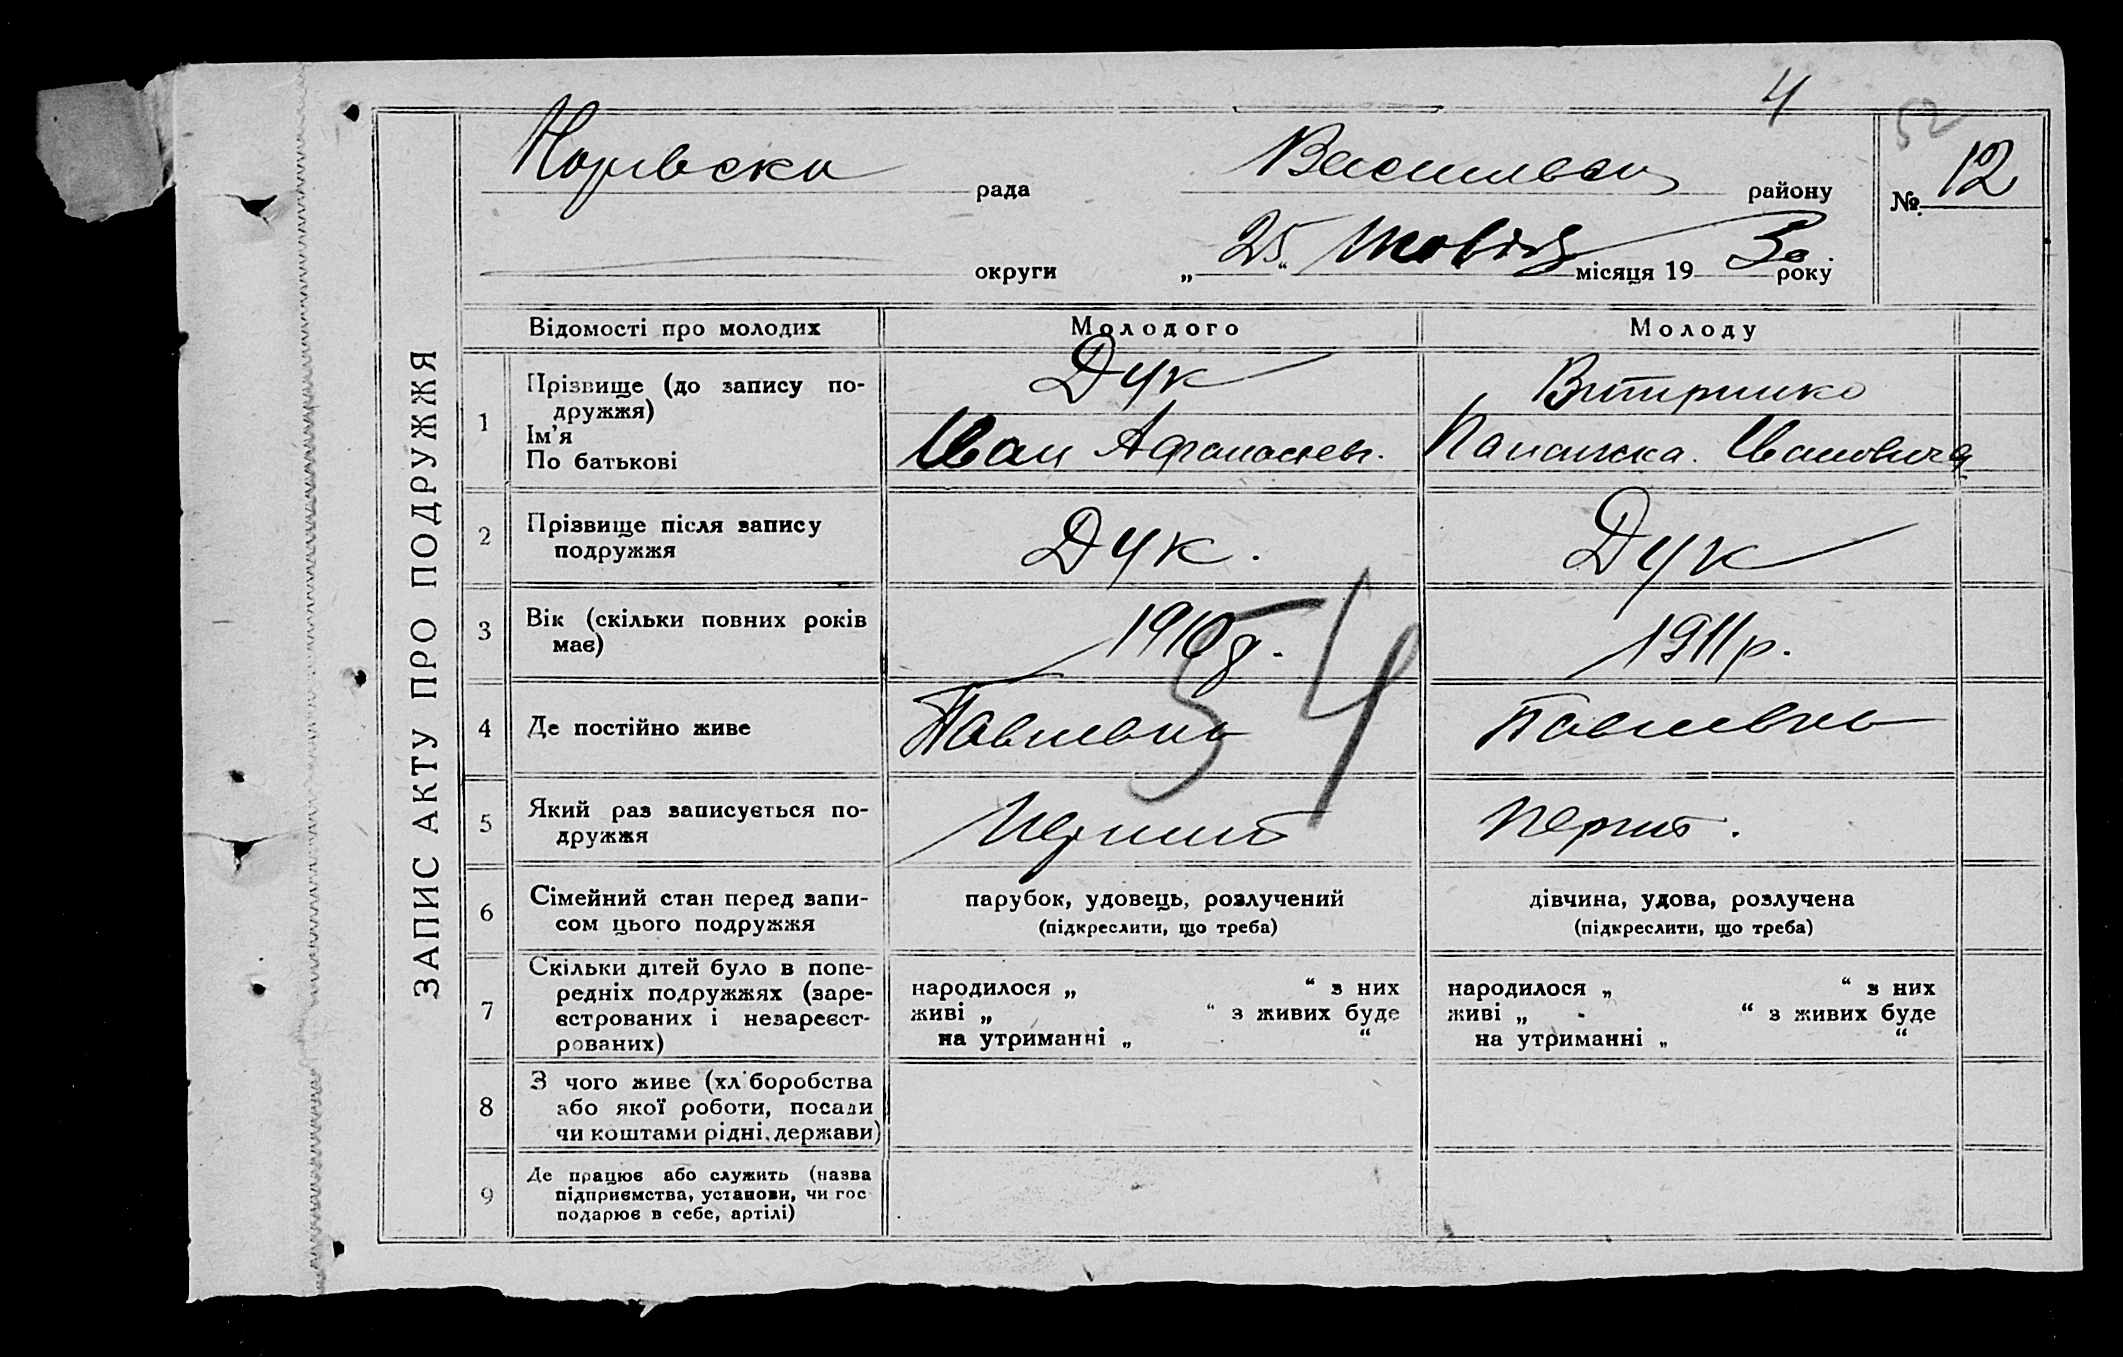 4
52
ЗАПИС АКТУ ПРО ПОДРУЖЖЯ
рада
району
№ 12
округи „25“ місяця 1930 року
Відомості про молодих
Молодого
Молоду
1
Прізвище (до запису по-
дружжя)
Ім'я
По батькові
Дук
Иван
Ивановича
2
Прізвище після запису
подружжя
Дук.
Дук
3
Вік (скільки повних років
має)
1910
1911р.
54
4
Де постійно живе
5
Який раз записується по-
дружжя
6
Сімейний стан перед запи-
сом цього подружжя
парубок, удовець, розлучений
(підкреслити, що треба)
дівчина, удова, розлучена
(підкреслити, що треба)
7
Скільки дітей було в попе-
редніх подружжях (заре-
єстрованих і незареєст-
рованих)
народилося „ “ з них
живі „ “ з живих буде
на утриманні „ “
народилося „ “ з них
живі „ “ з живих буде
на утриманні „ “
8
З чого живе (хл боробства
або якої роботи, посади
чи коштами рідні, держави)
9
Де працює або служить (назва
підприємства, установи, чи гос
подарює в себе, артілі)